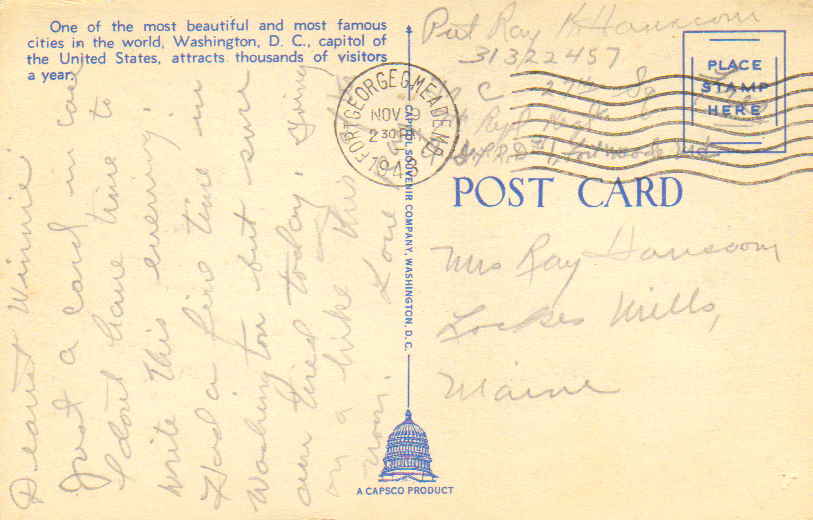 One of the most beautiful and most famous
cities in the world, Washington, D. C., capitol of
the United States, attracts thousands of visitors
a year.
Dearest Winnie
Just a card in case
I dont have time to
write this evening.
Had a fine time in
Washington but sure
am tired today. Going
on a hike this
noon. Love
CAPITOL SOUVENIR COMPANY, WASHINGTON, D.C.
A CAPSCO PRODUCT
Pvt Ray K Hanscom
31322457
Co C 27th
1st Repl Regt
FORT GEORGE G. MEADE MD.
NOV 9
2 30 PM
1943
PLACE
STAMP
HERE
POST CARD
Mrs Ray Hanscom
Lockes Mills,
Maine